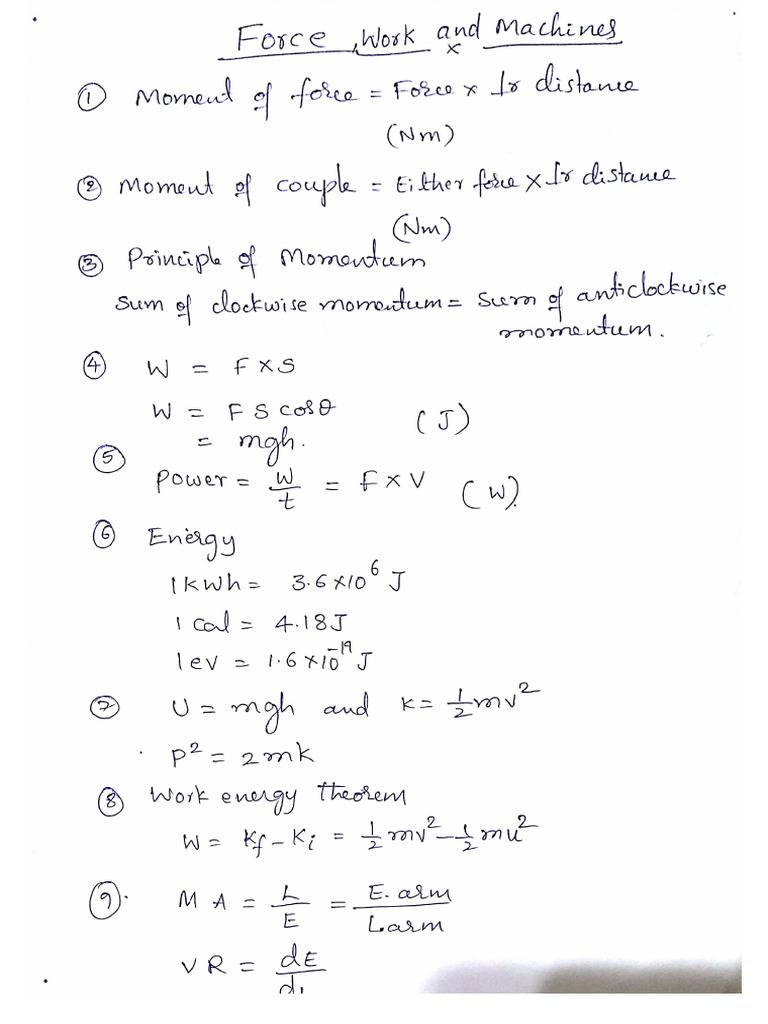 Force, Work and Machines
x
① Moment of force = Force x ⊥r distance
(Nm)
② Moment of couple = Either force x ⊥r distance
(Nm)
③ Principle of Momentum
Sum of clockwise momentum = Sum of anticlockwise
momentum.
④ W = F x S
W = F S cos θ (J)
= mgh.
⑤ Power = W/t = F x V (W).
⑥ Energy
1 kWh = 3.6 x 10⁶ J
1 cal = 4.18 J
1 ev = 1.6 x 10⁻¹⁹ J
⑦ U = mgh and K = ½ mv²
P² = 2mk
⑧ Work energy theorem
W = Kf - Ki = ½ mv² - ½ mu²
⑨. M A = L/E = E. arm/L arm
V R = dE/dL